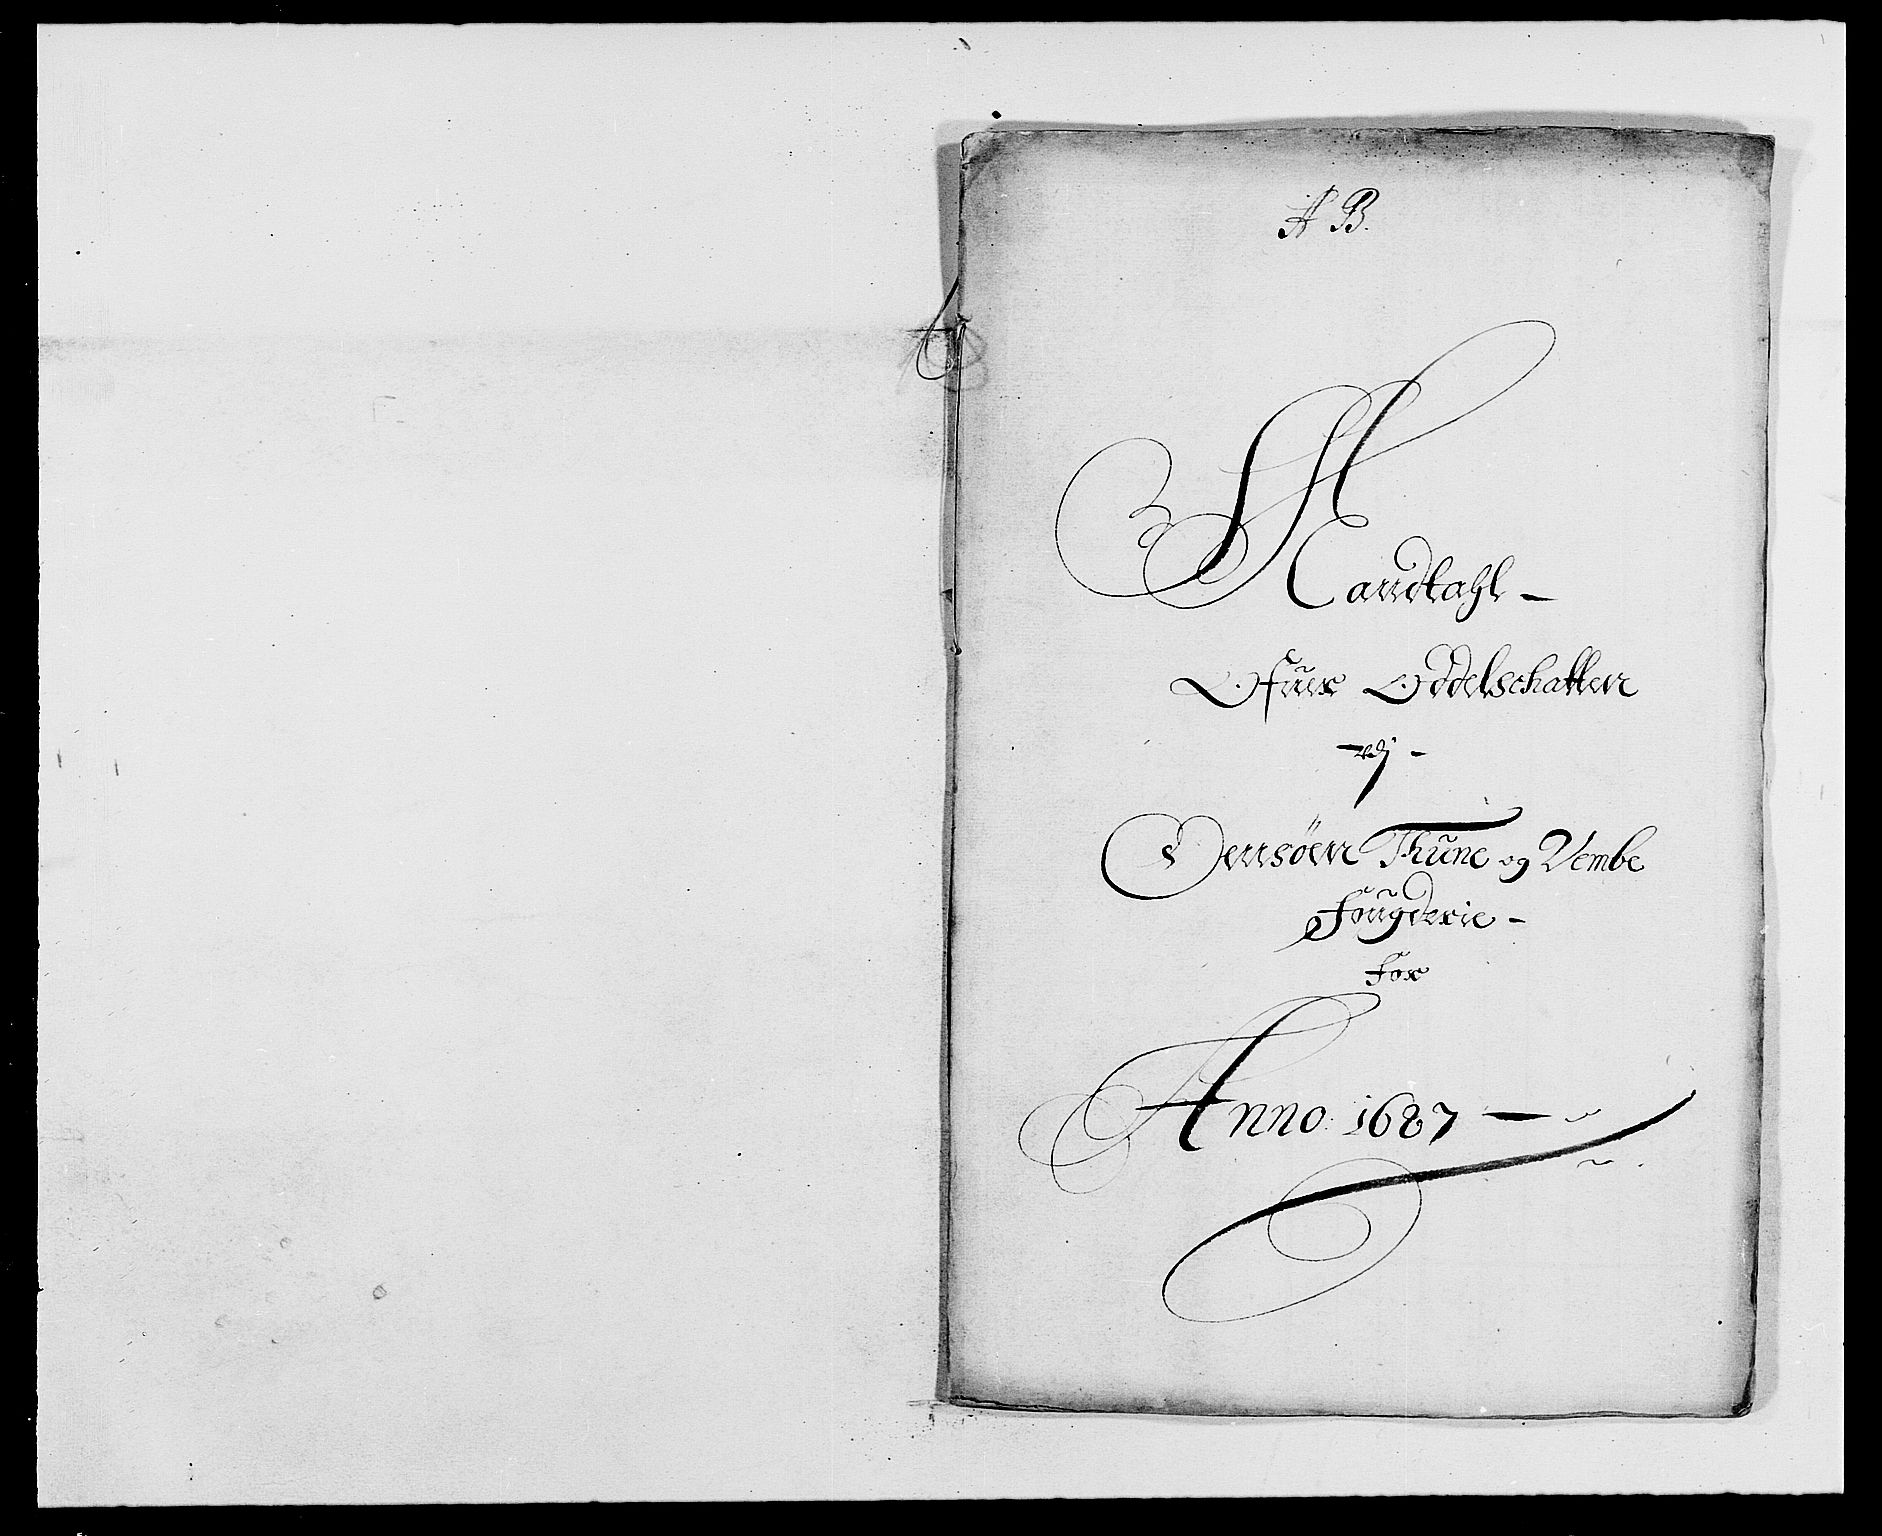 A B.
Mandtahl
Ofuer Oddelschatten
udj
Jemsöen Thune og Vembe
Fougderie
for
Anno 1687